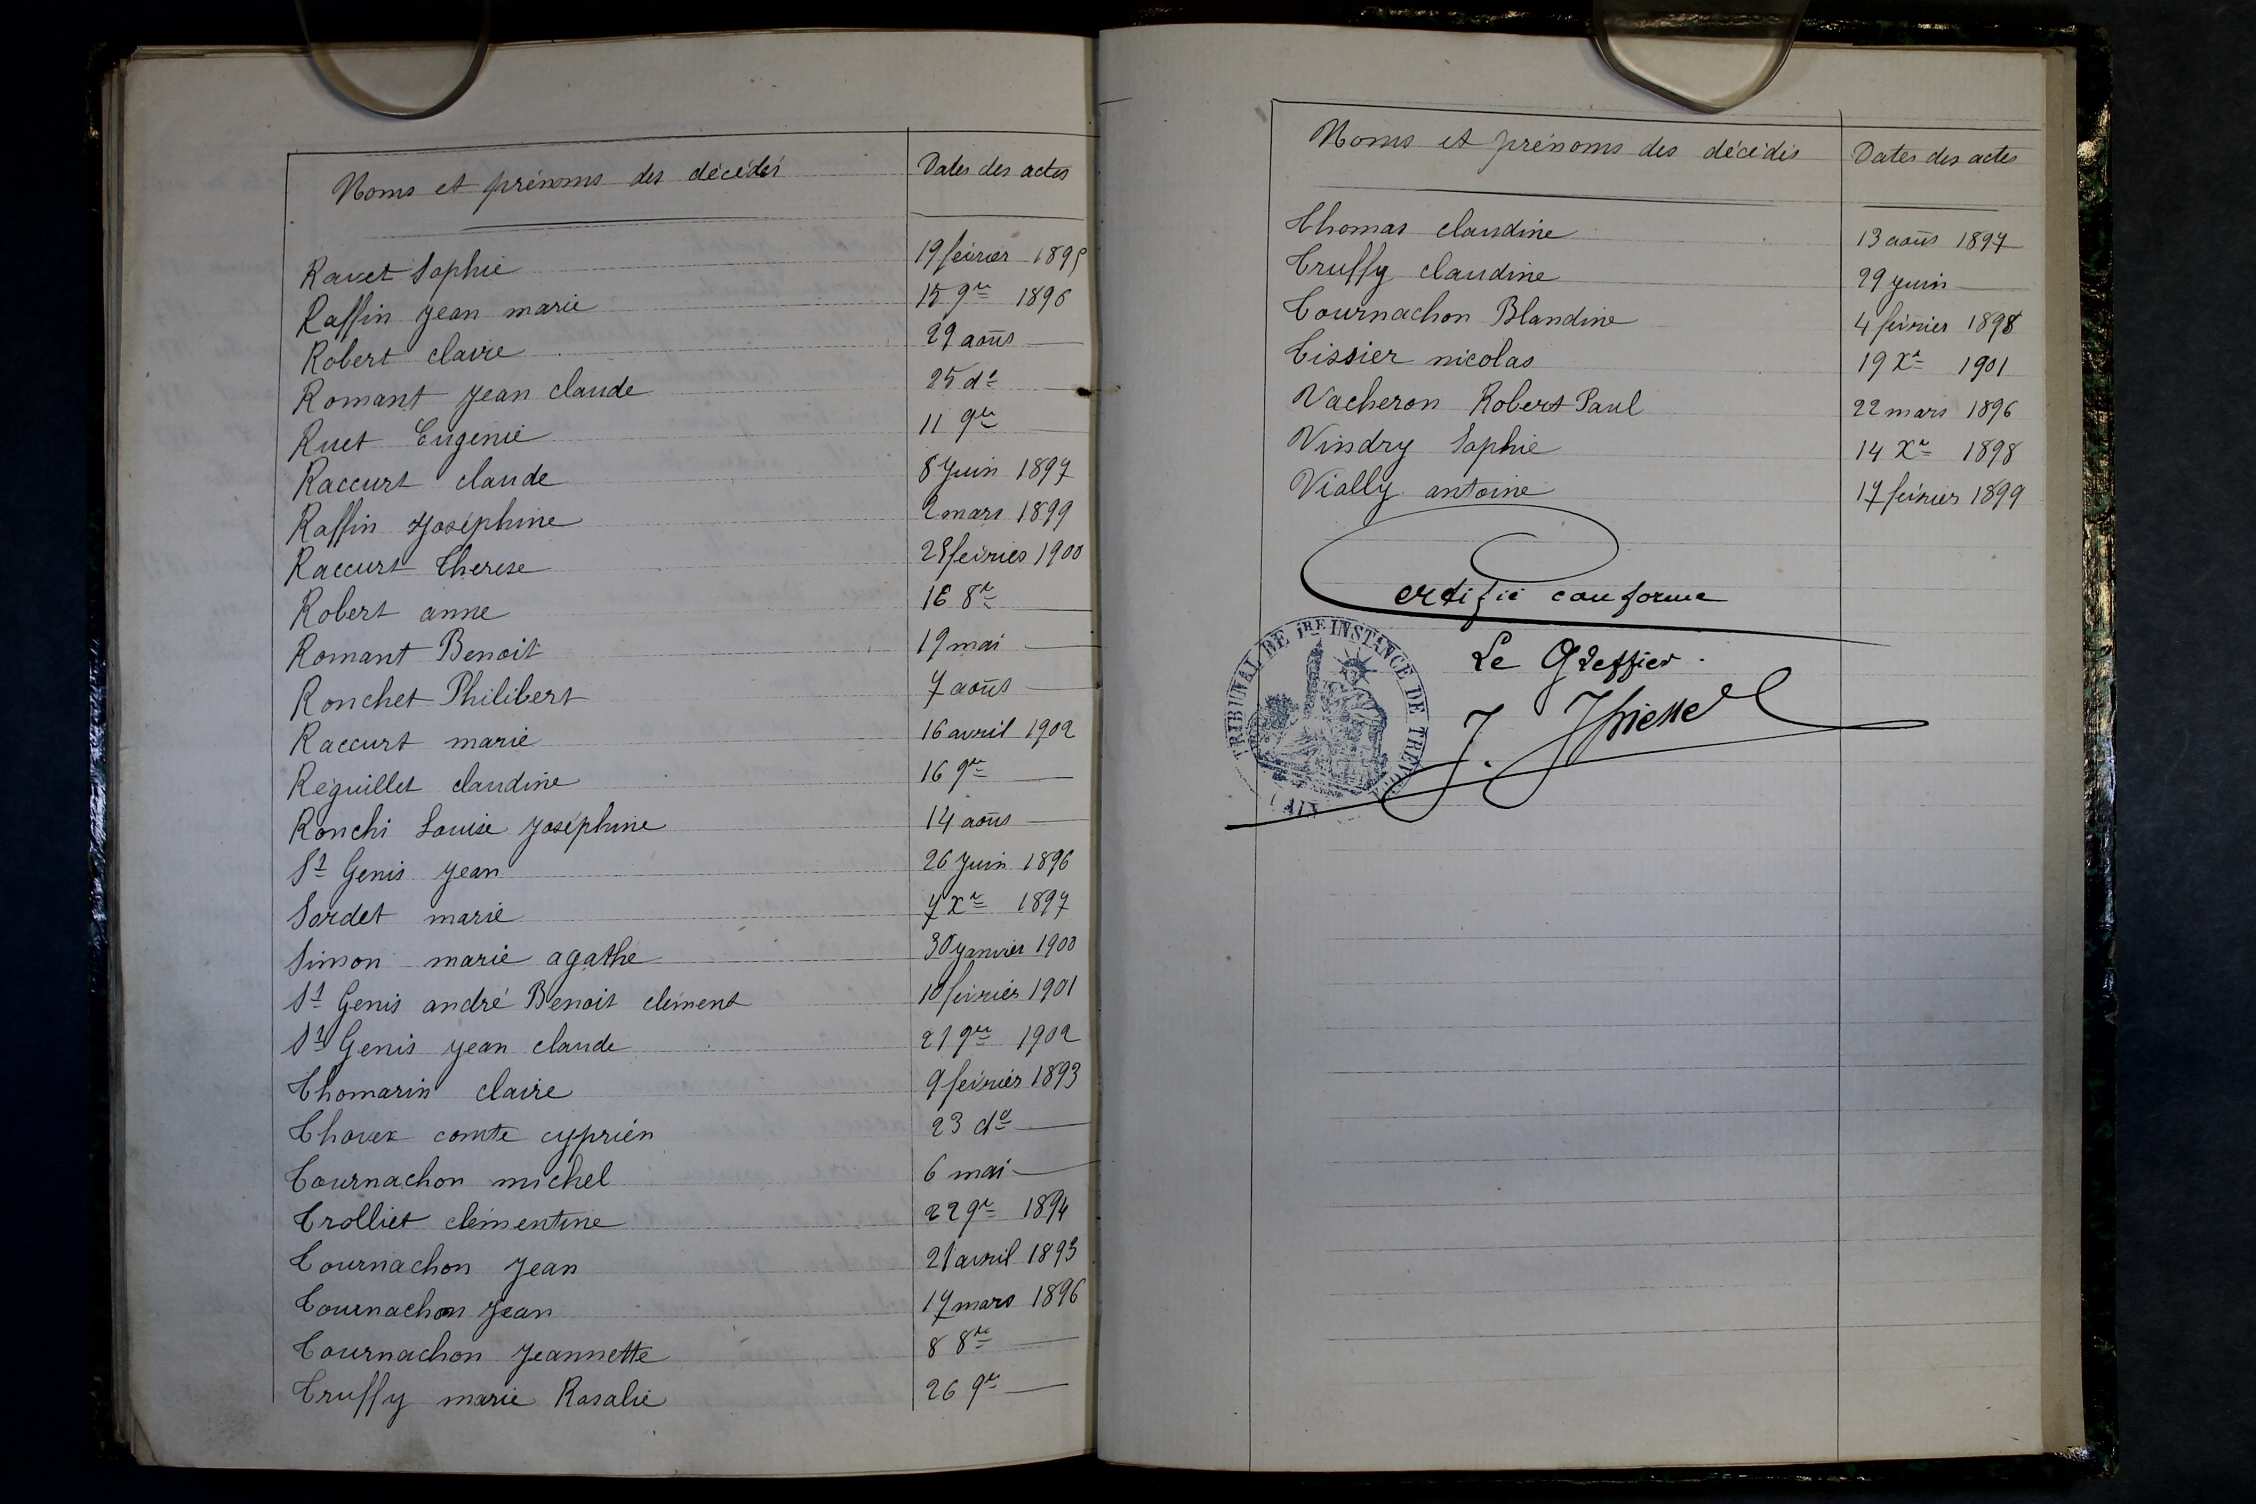 Noms et prénoms des décédés Dates des actes
Ravet Sophie 19 février 1895
Raffin Jean marie 15 9re 1896
Robert claire 29 août —
Romant Jean claude 25 do —
Ruet Eugénie 11 9re —
Raccurt claude 8 Juin 1897
Raffin Joséphine 2 mars 1899
Raccurt Therese 28 février 1900
Robert anne 16 8re —
Romant Benoit 19 mai —
Ronchet Philibert 7 août —
Raccurt marie 16 avril 1902
Réguillet claudine 16 9re —
Ronchi Louise Joséphine 14 août —
St Genis Jean 26 Juin 1896
Sordet marie 7 Xre 1897
Simon marie agathe 30 Janvier 1900
St Genis andré Benoit clément 10 février 1901
St Genis Jean claude 21 9re 1902
Thomarin claire 9 février 1893
Thovex comte cyprien 23 do —
Tournachon michel 6 mai —
Trolliet clémentine 22 9re 1894
Tournachon Jean 21 avril 1893
Tournachon Jean 17 mars 1896
Tournachon Jeannette 8 8re —
Truffy marie Rosalie 26 9re —
Noms et prénoms des décédés Dates des actes
Thomas claudine 13 août 1897
Truffy claudine 29 Juin —
Tournachon Blandine 4 février 1898
Tissier nicolas 19 Xre 1901
Vacheron Robert Paul 22 mars 1896
Vindry Sophie 14 Xre 1898
Vially antoine 17 février 1899
Certifié conforme
Le Greffier
TRIBUNAL DE 1RE INSTANCE DE TRÉVOUX
(AIN)